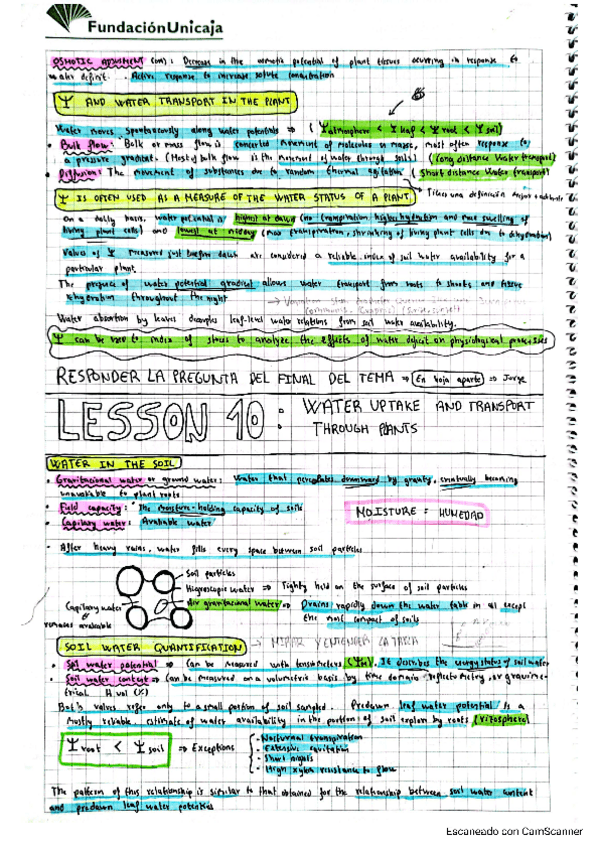 FundaciónUnicaja
OSMOTIC ADJUSMENT (OM): Decrease in the osmotic potential of plant tissues occurring in response to
water deficit. Active response to increase solute concentration
Ψ AND WATER TRANSPORT IN THE PLANT
Water moves spontaneously along water potentials ⇒ (Ψatmosphere < Ψleaf < Ψroot < Ψsoil)
• Bulk flow: Bulk or mass flow is concerted movement of molecules en masse, most often response to
a pressure gradient. (Most of bulk flow is the movement of water through soils) (Long distance Water transport)
• Diffusion: The movement of substances due to random thermal agitation (Short distance Water transport)
Ψ IS OFTEN USED AS A MEASURE OF THE WATER STATUS OF A PLANT. Tienes una definición mejor
On a daily basis, water potential is highest at dawn (no transpiration, higher hydration and more swelling of
living plant cells) and lowest at midday (max transpiration, shrinking of living plant cells due to dehydration)
Values of Ψ measured just before dawn are considered a reliable index of soil water availability for a
particular plant.
The presence of water potential gradient allows water transport from roots to shoots and tissue
rehydration throughout the night
Water absortion by leaves decouples leaf-level water relations from soil water availability.
Ψ can be used to index of stress to analyze the effects of water deficit on physiological processes
RESPONDER LA PREGUNTA DEL FINAL DEL TEMA ⇒ En hoja aparte ⇒ Jorge
LESSON 10: WATER UPTAKE AND TRANSPORT
THROUGH PLANTS
WATER IN THE SOIL
• Gravitacional water or ground water: Water that percolates downward by gravity, eventually becoming
unavailable to plant roots
• Field capacity: The moisture-holding capacity of soils
• Capilary water: Available water
MOISTURE = HUMEDAD
- After heavy rains, water fills every space between soil particles
Soil particles
Higroscopic water ⇒ Tightly held on the surface of soil particles
Capilary water
remains available
Air gravitacional water ⇒ Drains rapidly down the water table in all except
the most compact of soils
SOIL WATER QUANTIFICATION
• Soil water potential ⇒ Can be measured with tensiometers (Ψm). It describes the energy status of soil water
• Soil water content ⇒ Can be measured on a volumetric basis by time domain reflectometry, or gravime-
trical H vol (%)
Both values refer only to a small portion of soil sampled. Predawn leaf water potential is a
mostly reliable estimate of water availability in the portion of soil explor by roots (rizosphere)
Ψroot < Ψsoil ⇒ Exceptions
- Nocturnal transpiration
- Extensive cavitation
- Short nights
- High xylem resistance to flow
The pattern of this relationship is similar to that obtained for the relationship between soil water content
and predawn leaf water potencies
Escaneado con CamScanner